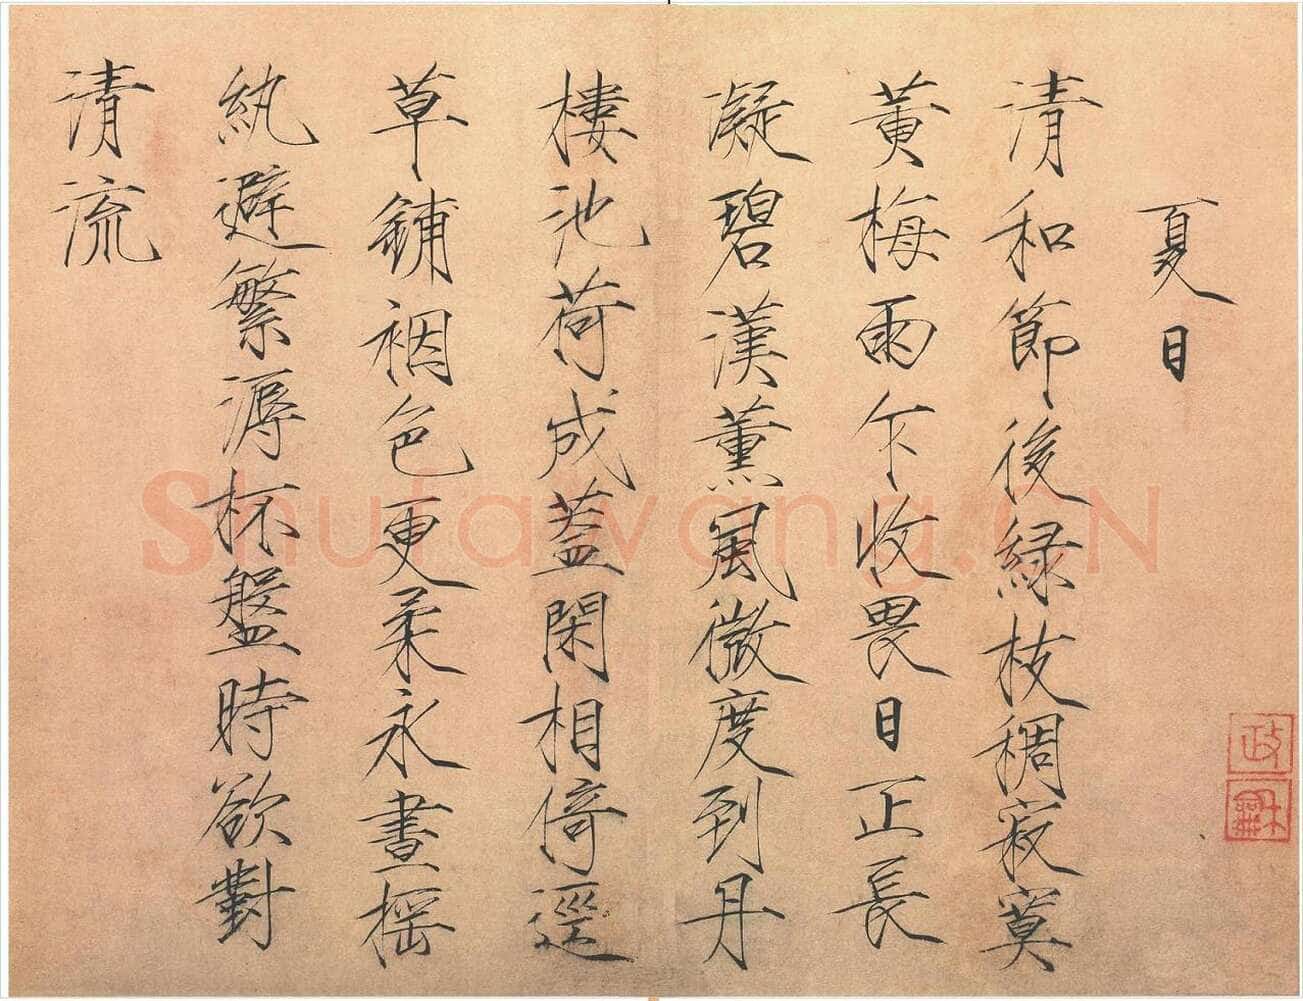 夏日
清和節後緑枝稠寂寞
黄梅雨乍收畏日正長
凝碧漢薫風微度到丹
樓池荷成蓋閑相倚逕
草鋪裀色更柔永晝揺
紈避繁溽杯盤時欲對
清流
政和
Shufawang.CN